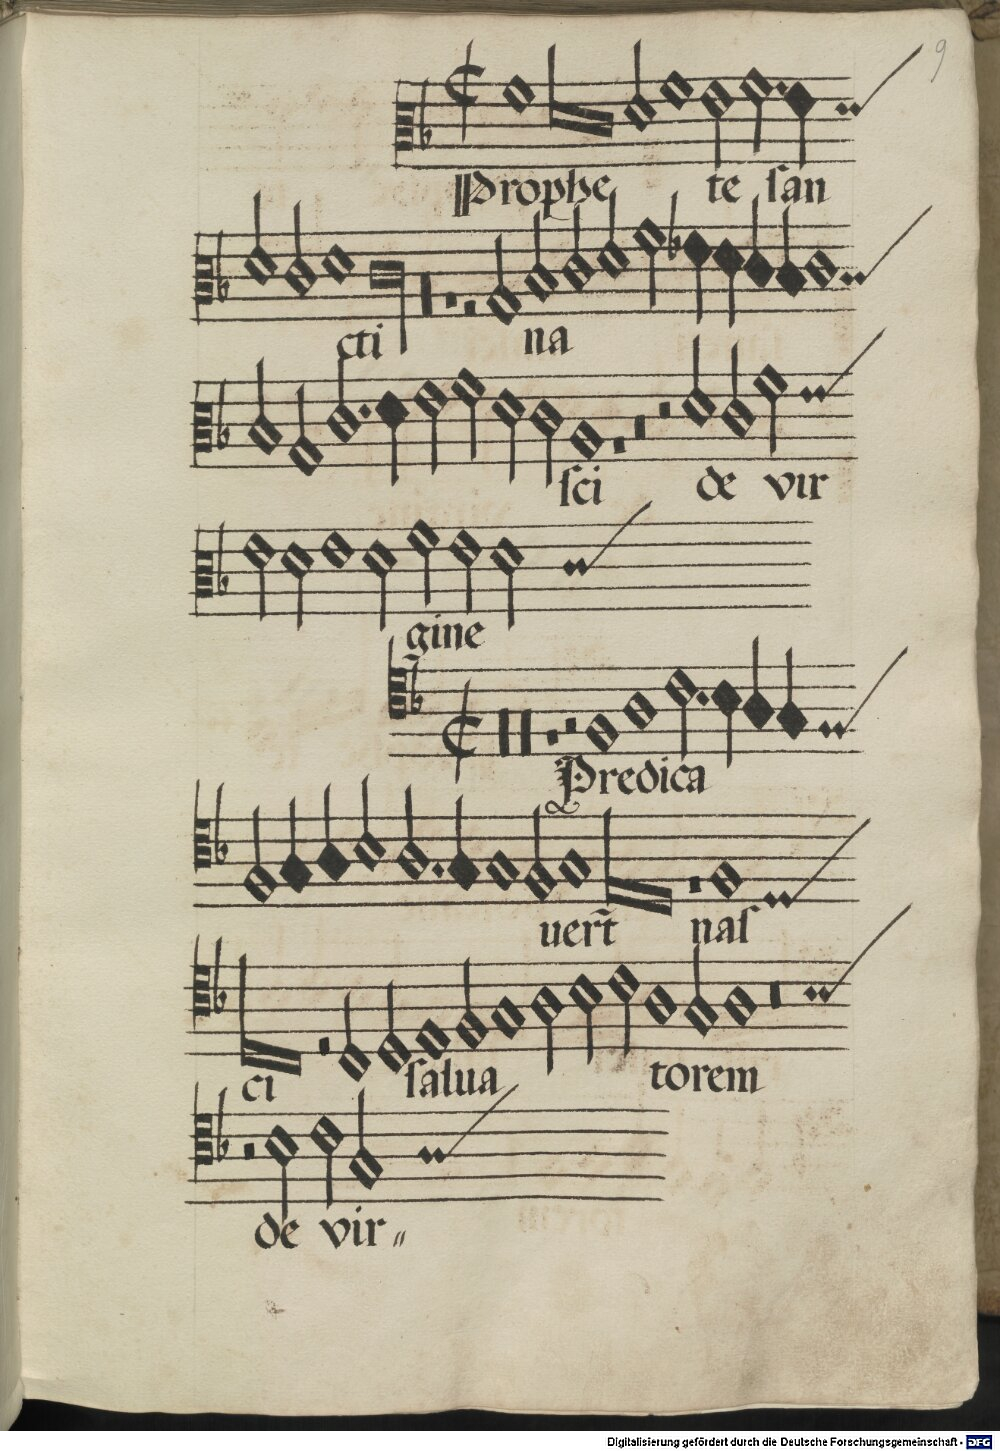 9
Prophe te san
cti na
sci de vir
gine
Predica
uert̃ nas
ci salua torem
de vir〃
Digitalisierung gefördert durch die Deutsche Forschungsgemeinschaft - DFG